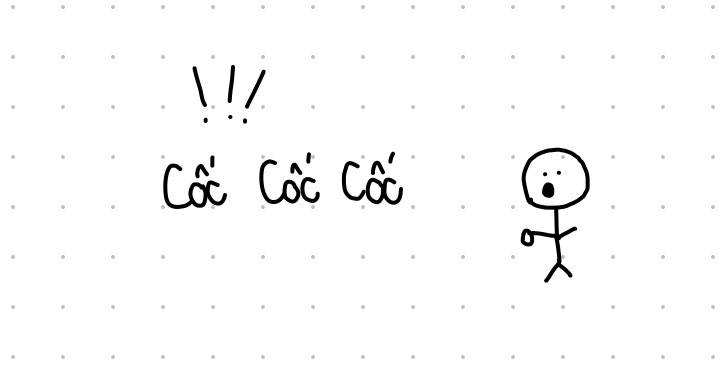 !!!
Cốc Cốc Cốc